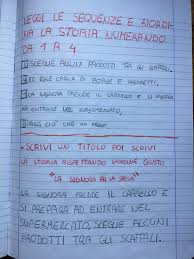 LEGGI LE SEQUENZE E RIORDI-
NA LA STORIA NUMERANDO
DA 1 A 4
SCEGLIE ALCUNI PRODOTTI TRA GLI SCAFFALI.
ED ESCE CARICA DI BORSE E SACCHETTI.
LA SIGNORA PRENDE IL CARRELLO E SI PREPARA
AD ENTRARE NEL SUPERMERCATO,
PAGA CIÒ CHE HA PRESO
• SCRIVI UN TITOLO POI SCRIVI
LA STORIA RISPETTANDO L'ORDINE GIUSTO
"LA SIGNORA FA LA SPESA"
LA SIGNORA PRENDE IL CARRELLO E
SI PREPARA AD ENTRARE NEL
SUPERMERCATO, SCEGLIE ALCUNI
PRODOTTI TRA GLI SCAFFALI.